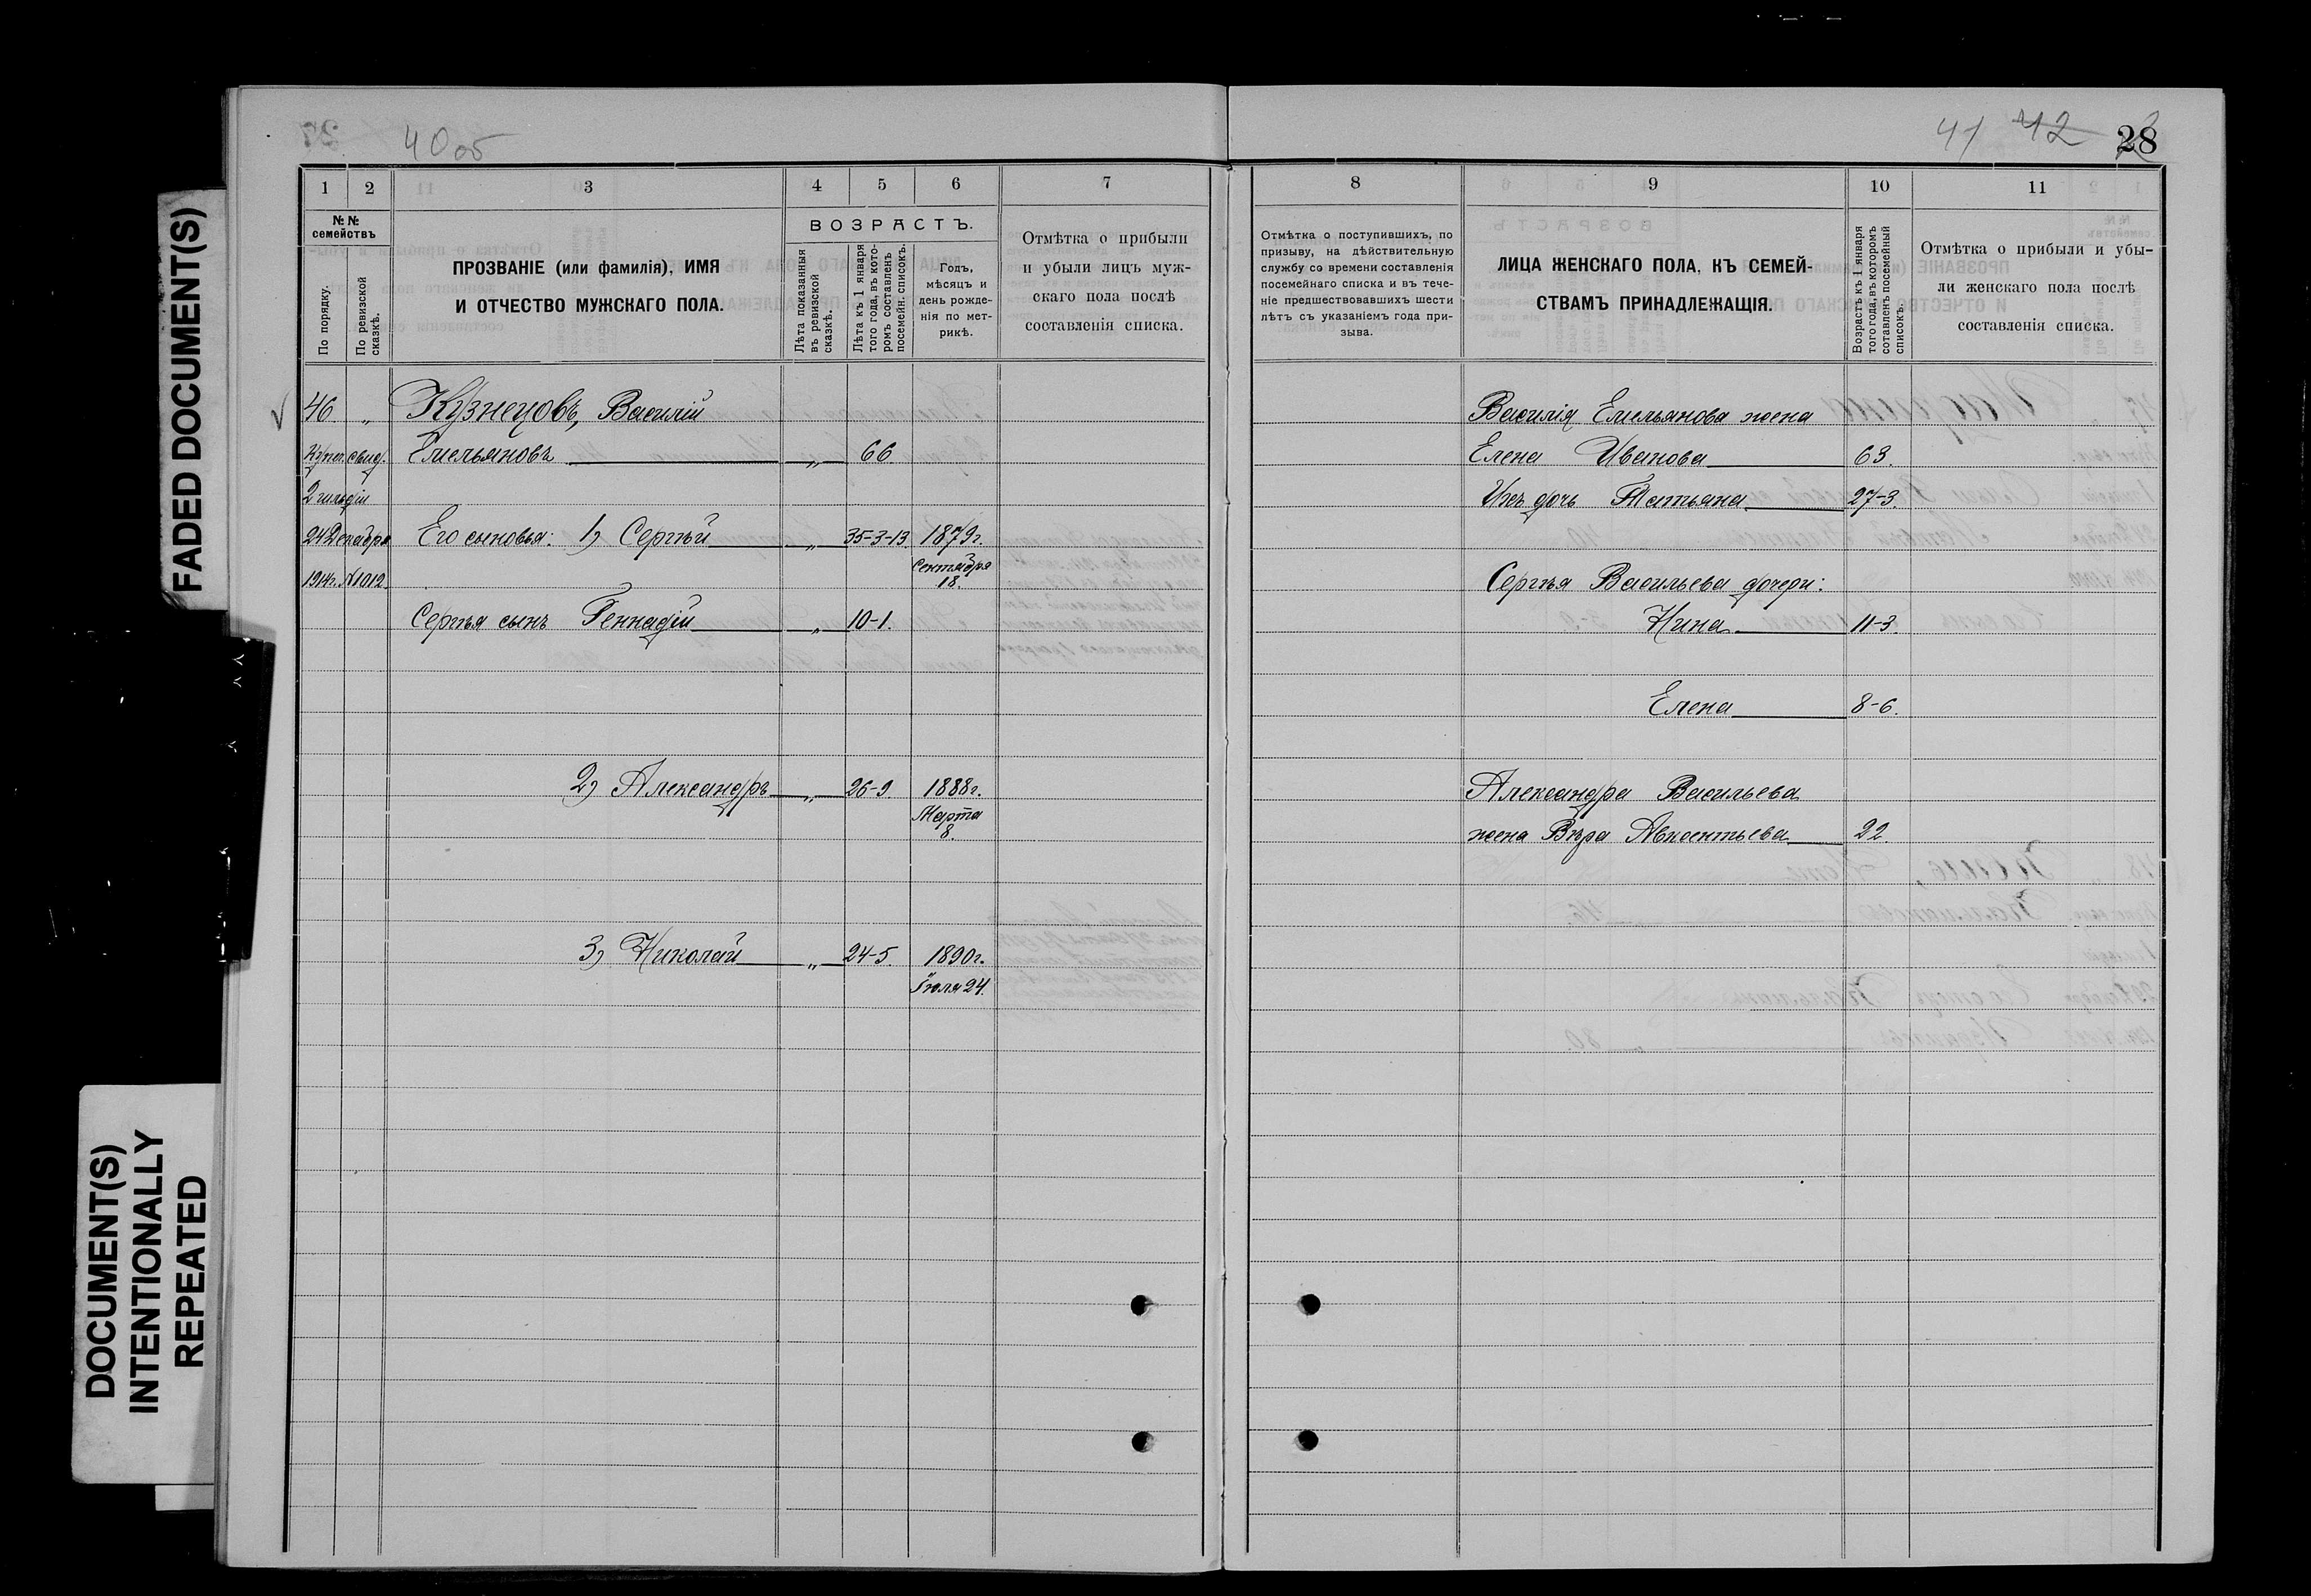 40 об
41 42 28
FADED DOCUMENT(S)
DOCUMENT(S)
INTENTIONALLY
REPEATED
1 2 3 4 5 6 7
№№ семействъ
По порядку.
По ревизской сказкѣ.
ПРОЗВАНІЕ (или фамилія), ИМЯ
И ОТЧЕСТВО МУЖСКАГО ПОЛА.
ВОЗРАСТЪ.
Лѣта показанныя
въ ревизской
сказкѣ.
Лѣта къ 1 января
того года, въ кото-
ромъ составленъ
посемейн. списокъ.
Годъ,
мѣсяцъ и
день рожде-
нія по мет-
рикѣ.
Отмѣтка о прибыли
и убыли лицъ муж-
скаго пола послѣ
составленія списка.
46. „ Кузнецовъ, Василій
Купеч. свид. Емельяновъ „ 66.
2 гильдіи
24 Декабря Его сыновья: 1) Сергѣй „ 35-3-13. 1879г.
Сентября
1914г. №1012. 18.
Сергѣя сынъ Геннадій „ 10-1.
2) Александръ „ 26-9. 1888г.
Марта
8.
3) Николай „ 24-5. 1890г.
Іюля 24.
8 9 10 11
Отмѣтка о поступившихъ, по
призыву, на дѣйствительную
службу со времени составленія
посемейнаго списка и въ тече-
ніе предшествовавшихъ шести
лѣтъ съ указаніемъ года при-
зыва.
ЛИЦА ЖЕНСКАГО ПОЛА, КЪ СЕМЕЙ-
СТВАМЪ ПРИНАДЛЕЖАЩІЯ.
Возрастъ къ 1 января
того года, въ которомъ
сотавленъ посемейный
списокъ.
Отмѣтка о прибыли и убы-
ли женскаго пола послѣ
составленія списка.
Василія Емельянова жена
Елена Иванова 63.
Ихъ дочь Татьяна 27-3.
Сергѣя Васильева дочери:
Нина 11-3.
Елена 8-6.
Александра Васильева
жена Вѣра Авксентьева 22.